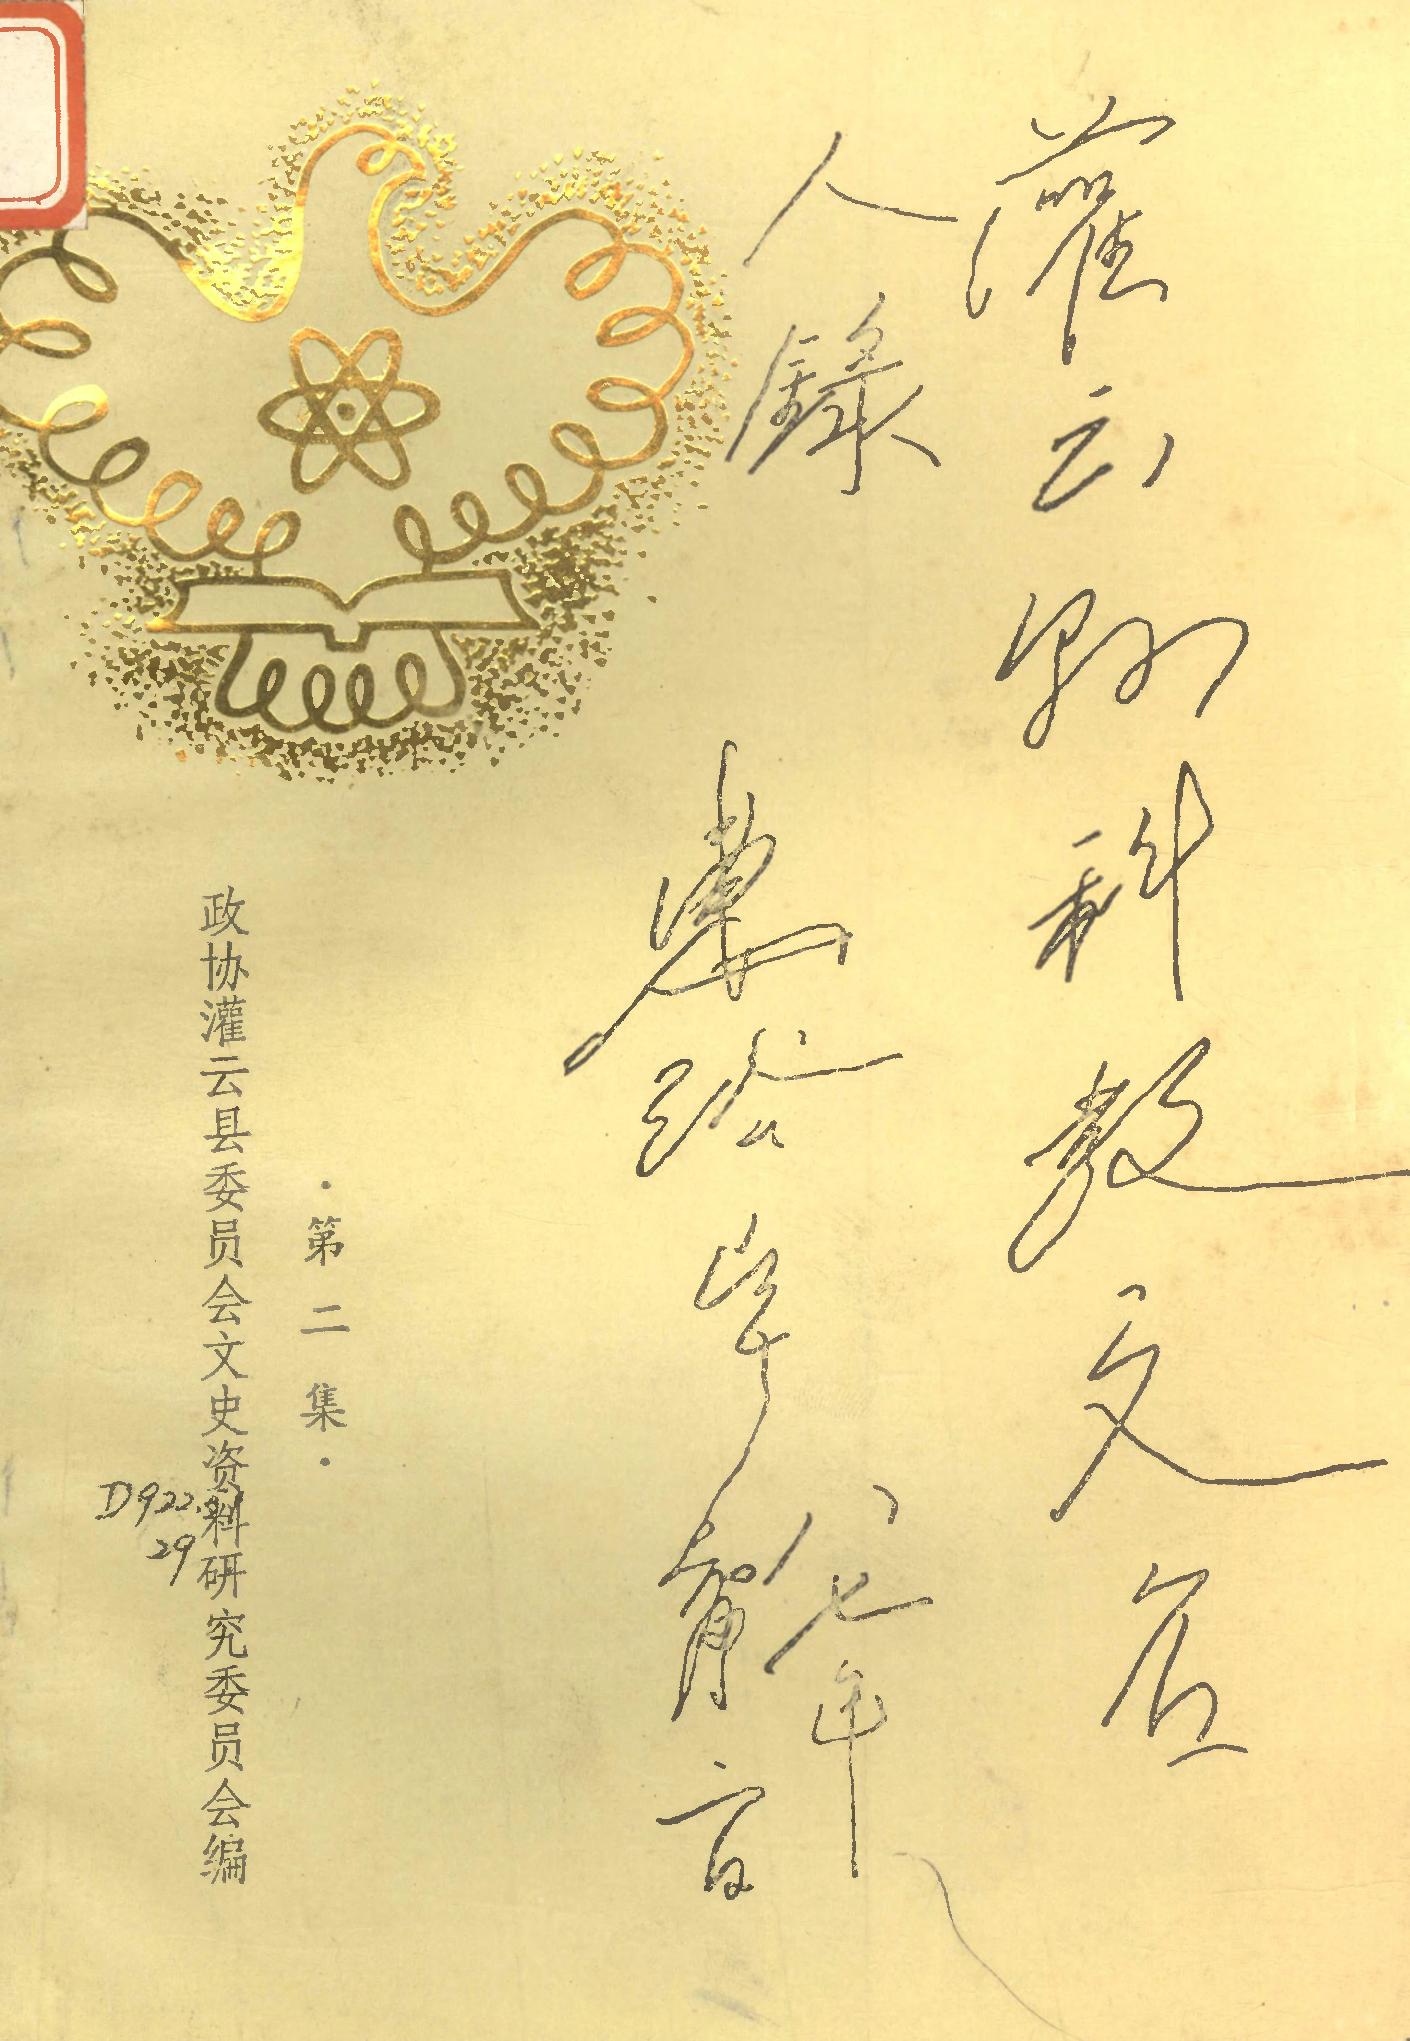 灌云县科教文名
人錄
八七年
惠浴宇
·第二集·
政协灌云县委员会文史资料研究委员会编
D922.
29